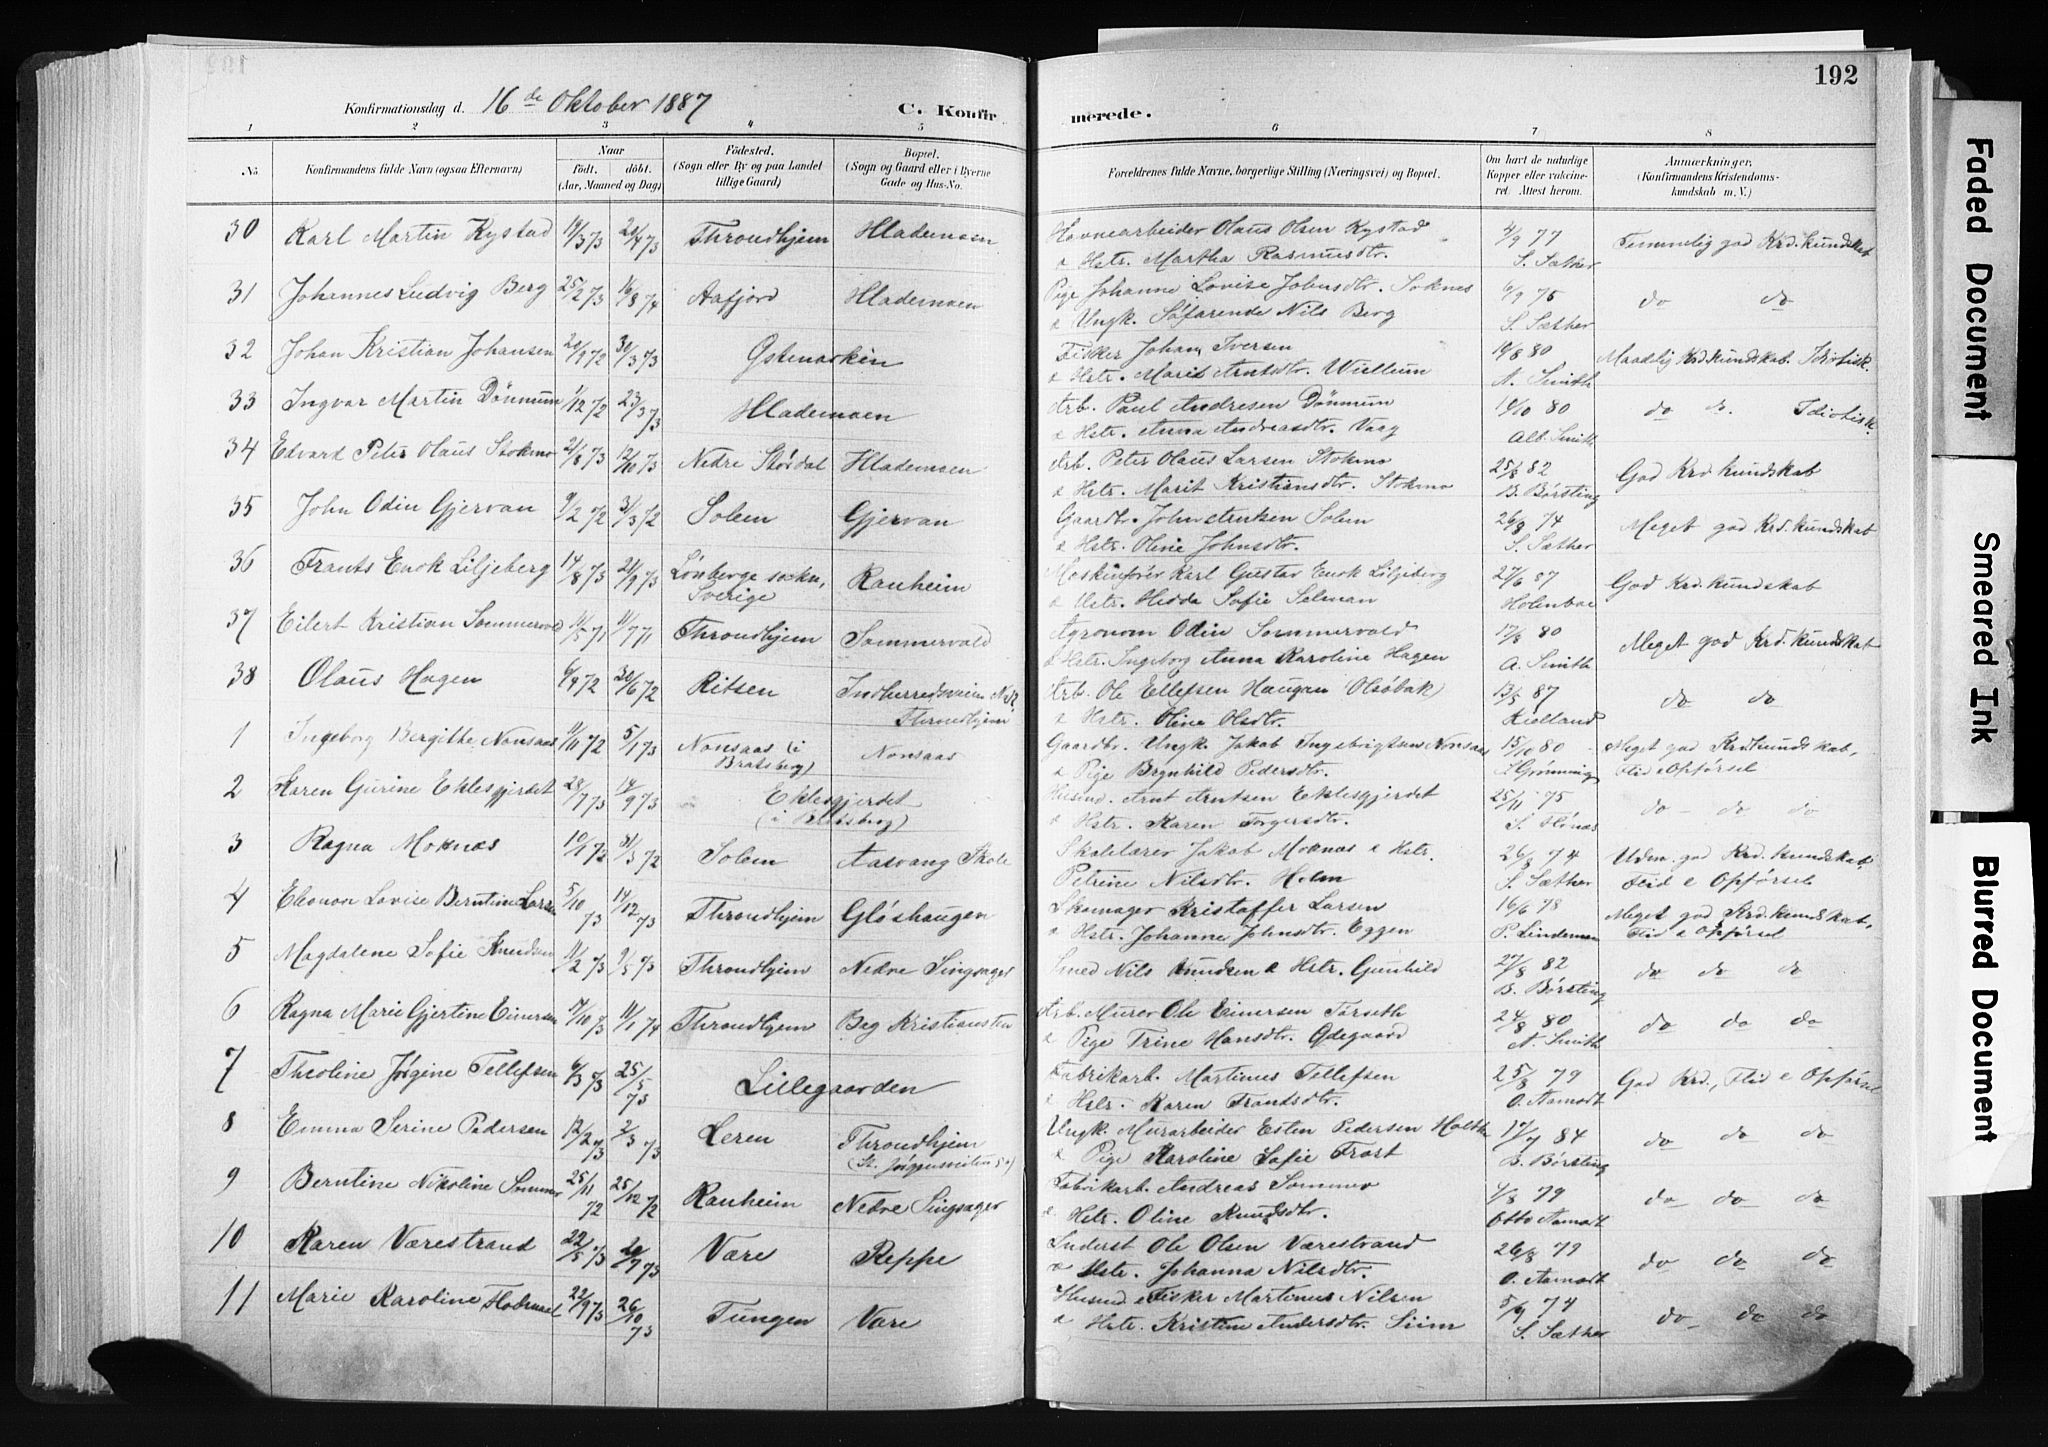 192
Konfirmationsdag d. 16de Oktober 1887 C. Konfirmerede.
1 2 3 4 5 6 7 8
No. Konfirmandens fulde Navn (ogsaa Efternavn) Naar født. døbt. (Aar, Maaned og Dag) Fødested. (Sogn eller By og paa Landet tillige Gaard) Bopæl. (Sogn og Gaard eller i Byerne Gade og Hus-No. Forældrenes fulde Navne, borgerlige Stilling (Næringsvei) og Bopæl. Om havt de naturlige Kopper eller vaccineret. Attest herom. Anmærkninger, (Konfirmandens Kristendomskundskab m. V.)
30 Karl Martin Rystad 19/3 73 20/4 73 Throndhjem Hlademoen Havnearbeider Olaus Olsen Rystad 4/9 77 Temmelig god Krd.kundskab
& Hstr. Martha Rasmusdtr. S. Sæther
31 Johannes Ludvig Berg 25/2 73 16/8 74 Aafjord Hlademoen Pige Johanne Lovise Johnsdtr. Soknes 6/9 75 do do
& Ungk. Søfarende Nils Berg S. Sæther
32 Johan Kristian Johansen 20/9 72 30/3 73 Østmarken Fisker Johan Iversen 10/8 80 Maadelig Krd.kundskab. Idiotisk.
& Hstr. Marit Arntsdtr. Wullum A. Smith
33 Ingvar Martin Dønnum 1/12 72 23/3 73 Hlademoen Arb. Paul Andresen Dønnum 14/10 80 do do. Idiotisk.
& Hstr. Anna Andreasdtr. Vaag Alb. Smith
34 Edvard Peter Olaus Stokmo 21/8 73 12/10 73 Nedre Størdal Hlademoen Arb. Peter Olaus Larsen Stokmo 25/8 82 God Krd.kundskab
& Hstr. Marit Kristiansdtr. Stokmo B. Børsting
35 John Odin Gjervan 9/2 72 31/3 72 Solem Gjervan Gaardbr. John Arntsen Solem 26/8 74 Meget god Krd.kundskab
& Hstr. Oline Johnsdtr. S. Sæther
36 Frants Enok Liljeberg 14/8 73 21/9 73 Lønberge sockn, Sverige Ranheim Maskinfører Karl Gustav Enok Liljeberg 27/6 87 God Krd.kundskab
& Hstr. Hedda Sofie Selman Holenboe
37 Eilert Kristian Sommervold 11/5 71 11/7 71 Throndhjem Sommervold Agronom Odin Sommervold 17/8 80 Meget god Krd.kundskab
& Hstr. Ingeborg Anna Karoline Hagen A. Smith
38 Olaus Hagen 6/4 72 30/6 72 Ritsen Indherredsveien Throndhjem Arb. Ole Ellefsen Haugan (Olsøbak) 13/5 87 do do
& Hstr. Oline Olsdtr. Kielland
1 Ingeborg Bergithe Nonsaas 11/10 72 5/1 73 Nonsaas (i Bratsberg) Nonsaas Gaardbr. Ungk. Jakob Ingebrigtsen Nonsaas 15/10 80 Meget god Krdkundskab,
& Pige Brynhild Pedersdtr. Grønning Flid & Opførsel
2 Karen Gurine Eklesgjerdet 28/7 73 14/9 73 Eklesgjerdet (i Bratsberg) Husmd. Arnt Arntsen Eklesgjerdet 25/11 75 do do do
& Hstr. Karen Torgersdtr. S. Hønæs
3 Ragna Moknæs 10/1 72 31/3 72 Solem Aasvang Skole Skolelærer Jakob Moknæs & Hstr. 26/8 74 Udm. god Krd.kundskab,
Petrine Nilsdtr. Holm S. Sæther Flid & Opførsel
4 Eleonor Lovise Berntine Larsen 5/10 73 14/12 73 Throndhjem Gløshaugen Skomager Kristoffer Larsen 16/6 78 Meget god Krd.kundskab,
& Hstr. Johanne Johnsdtr. Eggen P. Lindeman Flid & Opførsel
5 Magdalene Sofie Knudsen 11/2 73 9/5 73 Throndhjem Nedre Singsager Smed Nils Knudsen & Hstr. Gunhild 27/8 82 do do do
B. Børsting
6 Ragna Marie Gjertine Einersen 17/10 73 11/1 74 Throndhjem Bag Kristiansten Arb. Murer Ole Einersen Torseth 24/8 80 do do do
& Pige Trine Hansdtr. Ødegaard A. Smith
7 Theoline Jørgine Tellefsen 6/3 73 25/5 73 Lillegaarden Fabrikarb. Martinus Tellefsen 25/8 79 God Krd., Flid & Opførsel
& Hstr. Karen Frantsdtr. O. Aamodt
8 Emma Serine Pedersen 12/2 73 2/3 73 Leren Throndhjem Ungk. Murarbeider Esten Pedersen 17/7 84 do do do
& Pige Karoline Sofie Frost B. Børsting
9 Berntine Nikoline Sommer 25/11 72 25/12 72 Ranheim Nedre Singsager Fabrikarb. Andreas Sommer 4/8 79 do do do
& Hstr. Oline Knudsdtr. Otto Aamodt
10 Karen Værestrand 22/5 73 20/7 73 Være Reppe Inderst Ole Olsen Værestrand 26/8 79 do do do
& Hstr. Johanna Nilsdtr. O. Aamodt
11 Marie Karoline 22/9 73 26/10 73 Tungen Være Husmd & Fisker Martinus Nilsen 5/9 74 do do do
& Hstr. Kristine Andersdtr. Siim S. Sæther
Faded Document
Smeared Ink
Blurred Document